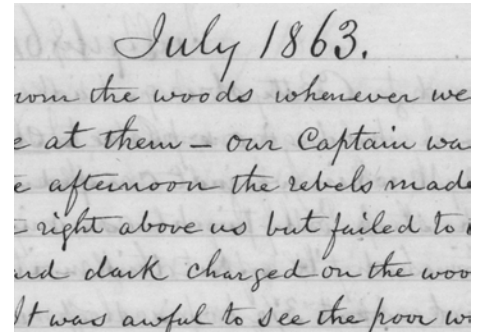 July 1863.
rom the woods whenever we
e at them – our Captain wa
e afternoon the rebels made
t right above us but failed to
ard dark charged on the woo
It was awful to see the poor wo